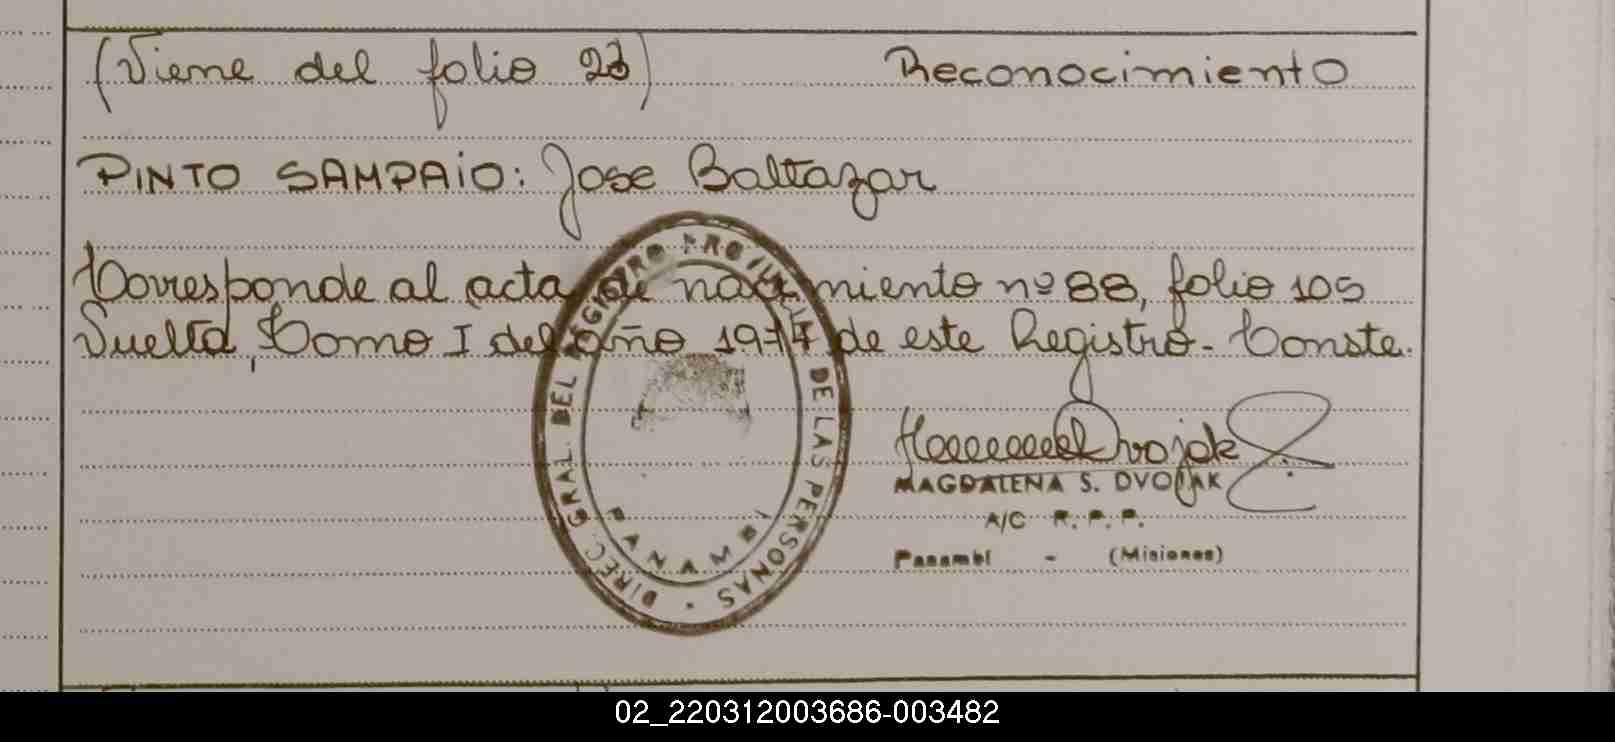 (Viene del folio 23) Reconocimiento
PINTO SAMPAiO: Jose Baltazar
Corresponde al acta de nacimiento nº 88, folio 105
Vuelta, Tomo I del año 1977 de este Registro - Conste.
DIREC. GRAL. DEL REGISTRO PROVINCIAL DE LAS PERSONAS
PANAMBI
Dvojak
MAGDALENA S. DVOJAK
A/C R. P. P.
Panambi - (Misiones)
02_220312003686-003482